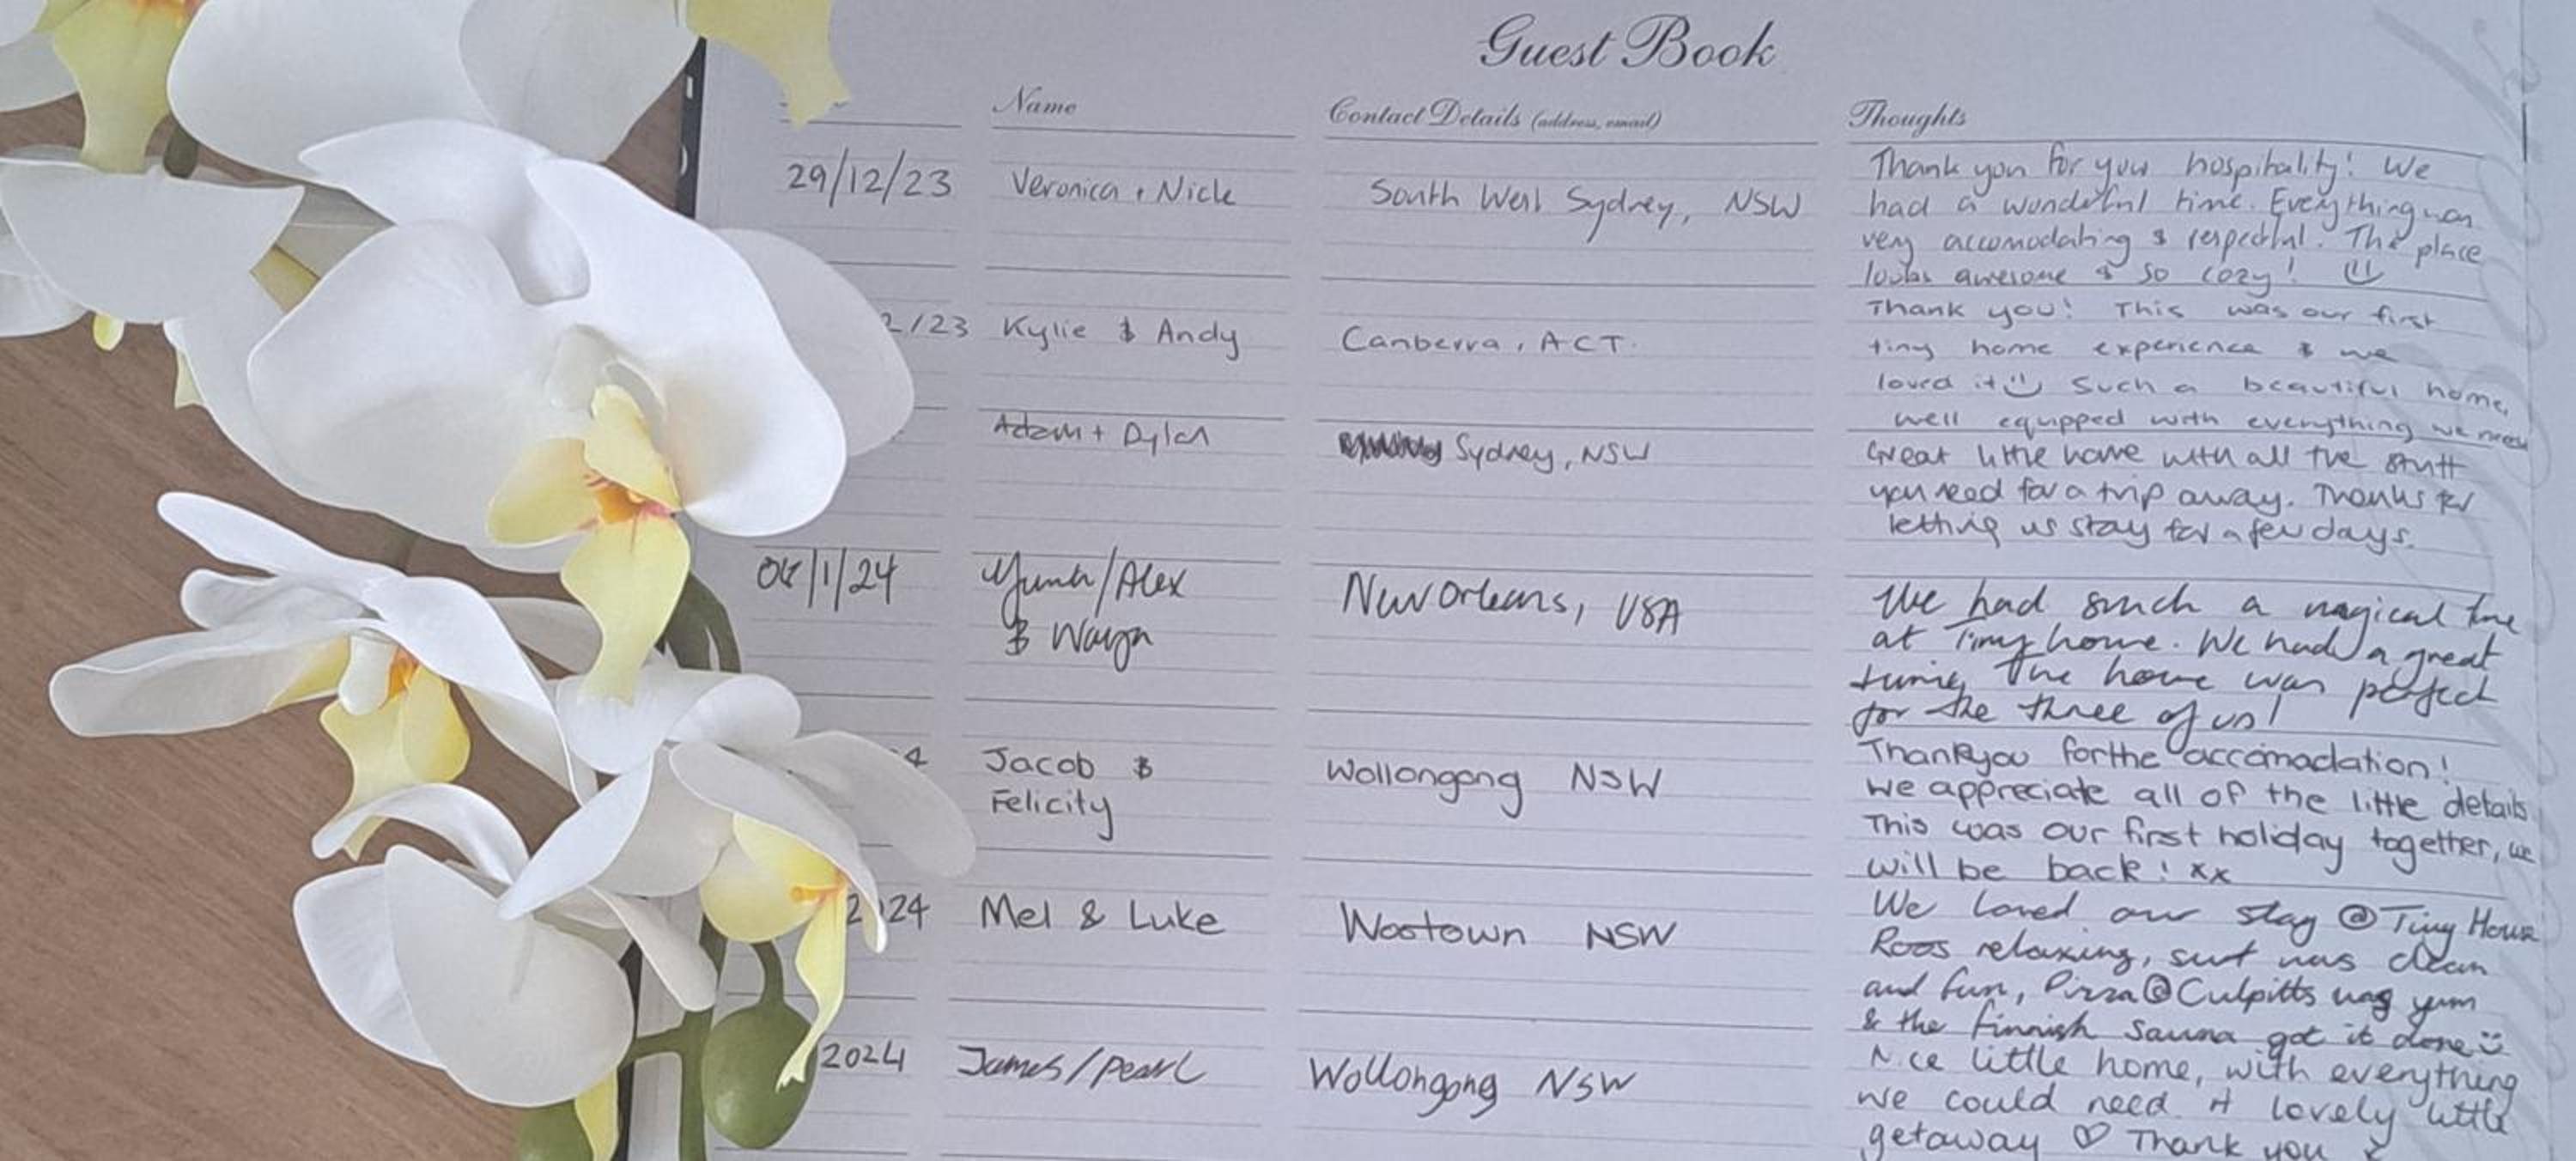 Guest Book
Name
Contact Details (address, email)
Thoughts
29/12/23
Veronica + Nick
South West Sydney, NSW
Thank you for your hospitality! We
had a wonderful time. Everything was
very accomodating & respectful. The place
looks awesome & so cozy!
2/23
Kylie & Andy
Canberra, ACT.
Thank you! This was our first
tiny home experience & we
loved it Such a beautiful home,
well equipped with everything we need
Adam + Dylan
Sydney, NSW
Great little home with all the stuff
you need for a trip away. Thanks for
letting us stay for a few days.
/1/24
/Alex
&
New Orleans, USA
We had such a magical time
at Tiny home. We had a great
time, The home was perfect
for the three of us!
4
Jacob &
Felicity
Wollongong NSW
Thankyou for the accomodation!
We appreciate all of the little details
This was our first holiday together, we
will be back! xx
2024
Mel & Luke
Wootown NSW
We loved our stay @ Tiny House
Roos relaxing, surf was clean
and fun, Pizza @ Culpitts was yum
& the finnish sauna got it done
2024
James/Pearl
Wollongong NSW
Nice little home, with everything
we could need. A lovely little
getaway ♡ Thank you x